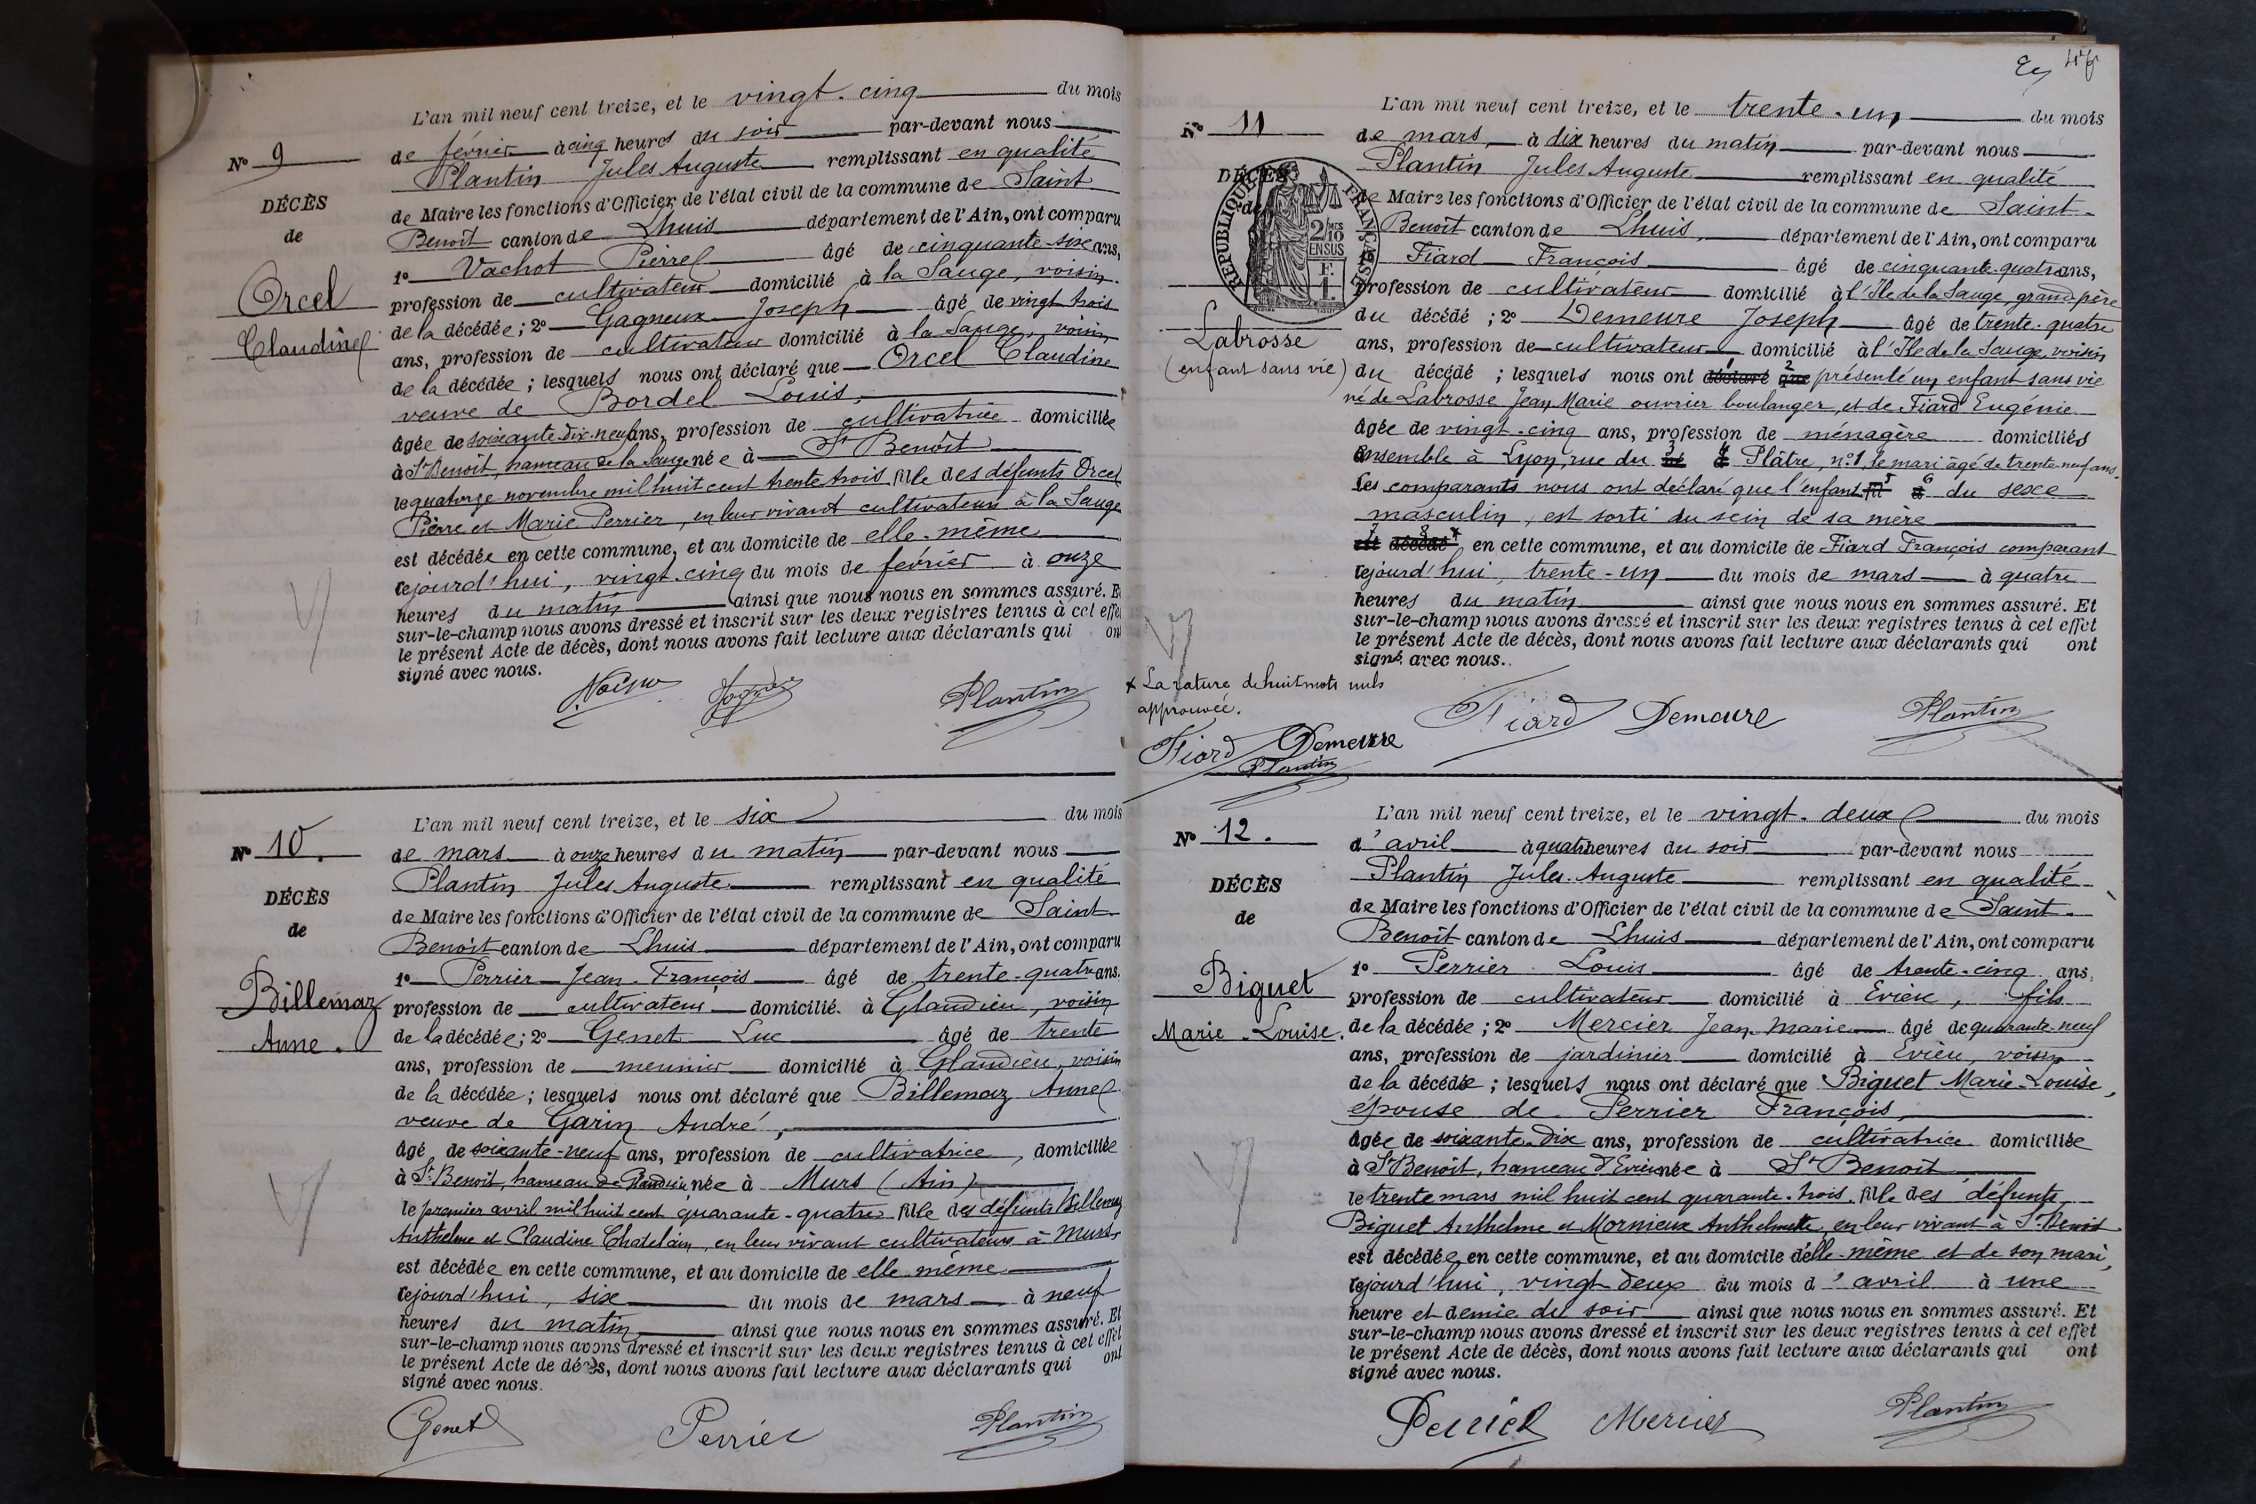 L'an mil neuf cent treize, et le vingt-cinq du mois
de février à cinq heures du soir par-devant nous
Plantin Jules Auguste remplissant en qualité
de Maire les fonctions d'Officier de l'état civil de la commune de Saint
Benoît canton de Lhuis département de l'Ain, ont comparu
1° Vachot Pierre âgé de cinquante-six ans,
profession de cultivateur domicilié à la Sauge, voisin
de la décédée ; 2° Gagneux Joseph âgé de vingt trois
ans, profession de cultivateur domicilié à la Sauge, voisin
de la décédée ; lesquels nous ont déclaré que Orcel Claudine
veuve de Bordel Louis,
âgée de soixante-dix-neuf ans, profession de cultivatrice domiciliée
à St Benoît, hameau de la Sauge née à St Benoît
le quatorze novembre mil huit cent trente trois fille des défunts Orcel
Pierre et Marie Perrier, en leur vivant cultivateurs à la Sauge
est décédée en cette commune, et au domicile de elle-même
cejourd'hui, vingt-cinq du mois de février à onze
heures du matin ainsi que nous nous en sommes assuré. Et
sur-le-champ nous avons dressé et inscrit sur les deux registres tenus à cet effet
le présent Acte de décès, dont nous avons fait lecture aux déclarants qui ont
signé avec nous.
Plantin
N° 9
DÉCÈS
de
Orcel
Claudine
L'an mil neuf cent treize, et le six du mois
de mars à onze heures du matin par-devant nous
Plantin Jules Auguste remplissant en qualité
de Maire les fonctions d'Officier de l'état civil de la commune de Saint-
Benoît canton de Lhuis département de l'Ain, ont comparu
1° Perrier Jean-François âgé de trente-quatre ans.
profession de cultivateur domicilié à Glandieu, voisin
de la décédée ; 2° Genet Luc âgé de trente
ans, profession de meunier domicilié à Glandieu, voisin
de la décédée ; lesquels nous ont déclaré que Billemaz Anne
veuve de Garin André,
âgé de soixante-neuf ans, profession de cultivatrice, domiciliée
à St Benoît, hameau de Glandieu née à Murs (Ain)
le premier avril mil huit cent quarante-quatre fille des défunts Billemaz
Anthelme et Claudine Chatelain, en leur vivant cultivateurs à Murs,
est décédée en cette commune, et au domicile de elle-même
cejourd'hui, six du mois de mars à neuf
heures du matin ainsi que nous nous en sommes assuré. Et
sur-le-champ nous avons dressé et inscrit sur les deux registres tenus à cet effet
le présent Acte de décès, dont nous avons fait lecture aux déclarants qui ont
signé avec nous.
Genet Perrier Plantin
N° 10.
DÉCÈS
de
Billemaz
Anne.
L'an mil neuf cent treize, et le trente-un du mois
de mars, à dix heures du matin par-devant nous
Plantin Jules Auguste remplissant en qualité
de Maire les fonctions d'Officier de l'état civil de la commune de Saint-
Benoît canton de Lhuis, département de l'Ain, ont comparu
Fiard François âgé de cinquante-quatre ans,
profession de cultivateur domicilié à l'Ile de la Sauge, grand père
du décédé ; 2° Demeure Joseph âgé de trente-quatre
ans, profession de cultivateur domicilié à l'Ile de la Sauge, voisin
du décédé ; lesquels nous ont déclaré 1 que 2 présenté un enfant sans vie
né de Labrosse Jean Marie ouvrier boulanger, et de Fiard Eugénie
âgée de vingt-cinq ans, profession de ménagère domiciliés
ensemble à Lyon, rue du né 3 à 4 Plâtre, n°1, le mari âgé de trente-neuf ans.
Les comparants nous ont déclaré que l'enfant fil 5 d 6 du sexe
masculin, est sorti du sein de sa mère
est 7 décédé 8 en cette commune, et au domicile de Fiard François comparant
cejourd'hui, trente-un du mois de mars à quatre
heures du matin ainsi que nous nous en sommes assuré. Et
sur-le-champ nous avons dressé et inscrit sur les deux registres tenus à cet effet
le présent Acte de décès, dont nous avons fait lecture aux déclarants qui ont
signé avec nous.
Fiard Demeure Plantin
N° 11
DÉCÈS
de
RÉPUBLIQUE FRANÇAISE
2/10 EN SUS
F. 1.
Labrosse
(enfant sans vie)
x La rature de huit mots nuls
approuvée.
Fiard Demeure
Plantin
L'an mil neuf cent treize, et le vingt-deux du mois
d'avril à quatre heures du soir par-devant nous
Plantin Jules Auguste remplissant en qualité
de Maire les fonctions d'Officier de l'état civil de la commune de Saint-
Benoît canton de Lhuis département de l'Ain, ont comparu
1° Perrier Louis âgé de trente-cinq ans,
profession de cultivateur domicilié à Evieu, fils
de la décédée ; 2° Mercier Jean-Marie âgé de quarante-neuf
ans, profession de jardinier domicilié à Evieu, voisin
de la décédée ; lesquels nous ont déclaré que Biguet Marie-Louise,
épouse de Perrier François,
âgée de soixante-dix ans, profession de cultivatrice domiciliée
à St Benoît, hameau d'Evieu née à St Benoît
le trente mars mil huit cent quarante-trois, fille des défunts
Biguet Anthelme et Mornieux Anthelmette, en leur vivant à St Benoît
est décédée en cette commune, et au domicile d'elle-même et de son mari,
cejourd'hui, vingt-deux du mois d'avril à une
heure et demie du soir ainsi que nous nous en sommes assuré. Et
sur-le-champ nous avons dressé et inscrit sur les deux registres tenus à cet effet
le présent Acte de décès, dont nous avons fait lecture aux déclarants qui ont
signé avec nous.
Perrier Mercier Plantin
N° 12.
DÉCÈS
de
Biguet
Marie-Louise.